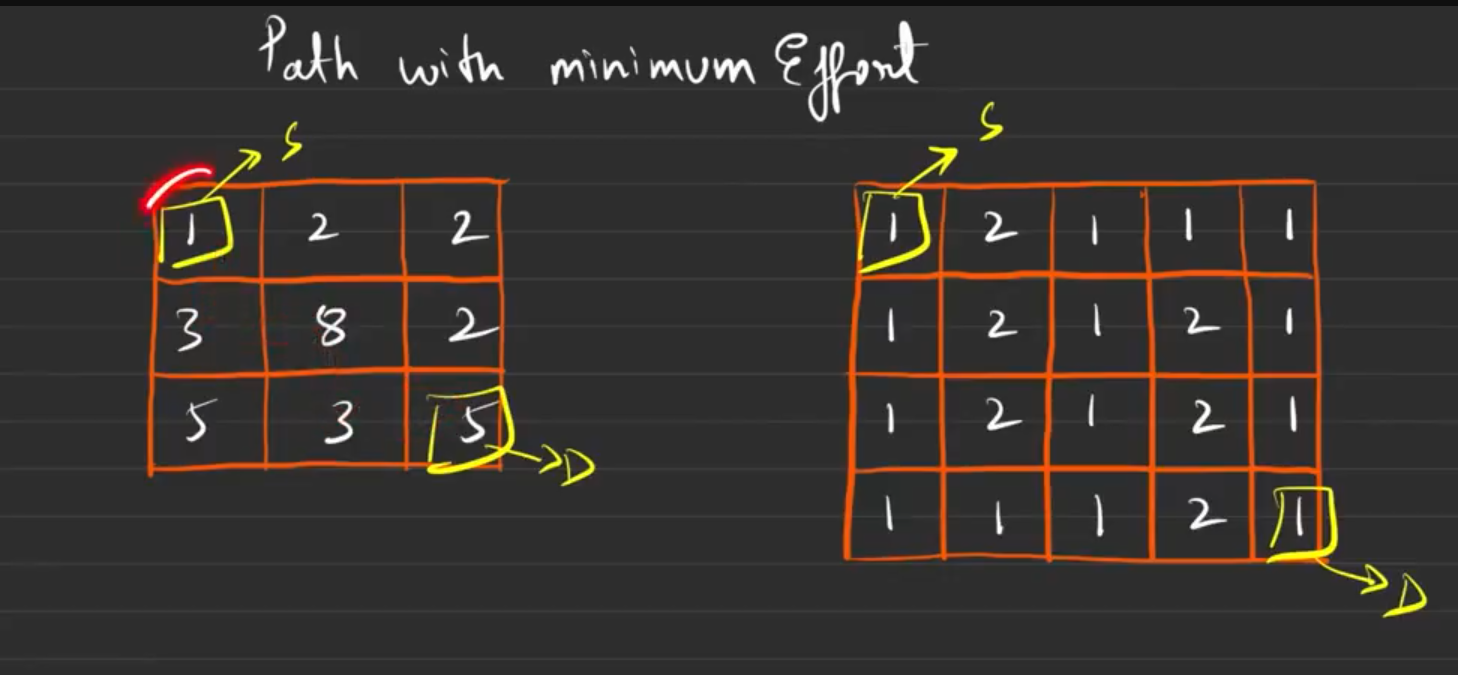 Path with minimum Effort
S
1 2 2
3 8 2
5 3 5
D
S
1 2 1 1 1
1 2 1 2 1
1 2 1 2 1
1 1 1 2 1
D